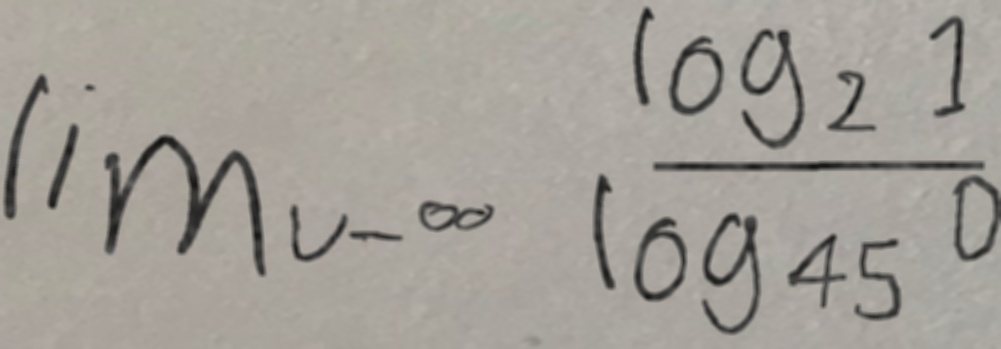 lim_{v-∞} \frac{log_2 1}{log_{45} 0}